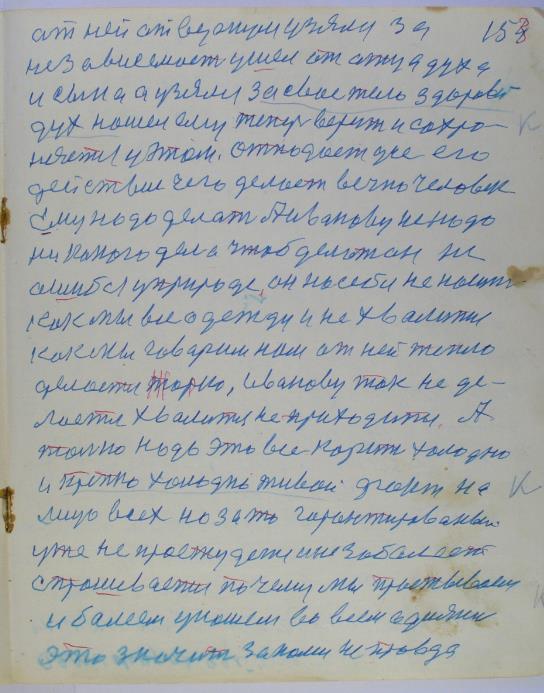 от ней отвернули узяли за 158
независемост ушел от отца духа
и сына а узяли за свае тело здоровея
дух нашел ему тепер верит и сохро-
няется у этом. отподает уже его
действии чего делает вечно человек
Ему надо делат А иванову ненадо
никакого дела чтоб делат он не
ошибся у природе, он на себи не носит
как мы все одежду и не хвалится
как мы говарим нам от ней тепло
делается жарко, иванову так не де-
лается хвалится не приходится. А
толко надо это все корит холодно
и плохо холодно живой дгорт на
лицо всех но зато гарантированый
уже не простудется и не забалеет
спрашивается почему мы простываем
и балеем у нашем во всем одеянии
это значит за нами не правда